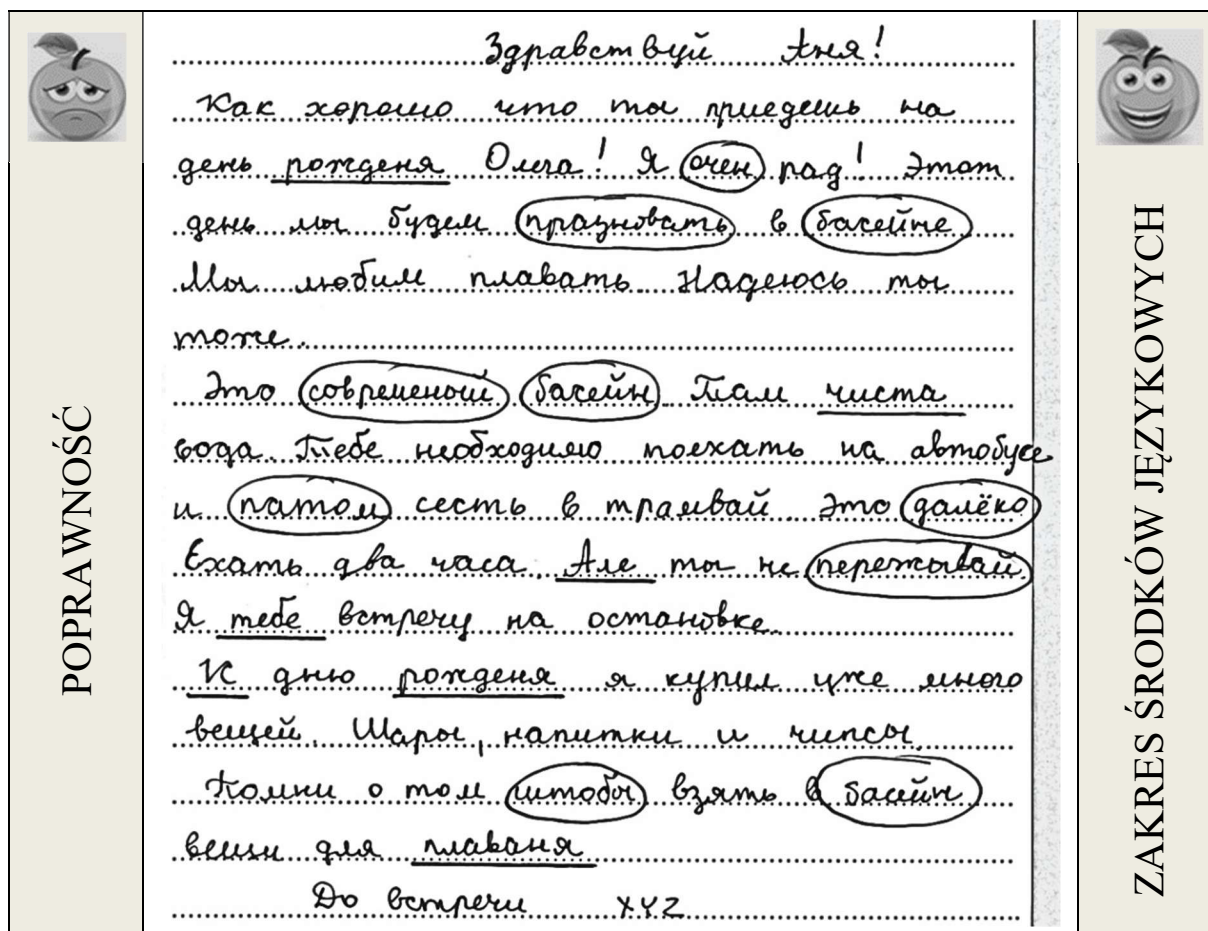 POPRAWNOŚĆ
Здравствуй Аня!
Как хорошо что ты приедешь на
день рожденя Олега! Я очен рад! Этот
день мы будем празновать в басейне
Мы любим плавать Надеюсь ты
тоже.
Это современый басейн Там чиста
вода. Тебе необходимо поехать на автобусе
и патом сесть в трамвай Это далёко
Ехать два часа. Але ты не пережывай.
Я тебе встречу на остановке
К дню рожденя я купил уже много
вещей. Шары, напитки и чипсы.
Помни о том штобы взять в басийн
вещи для плаваня
До встречи XYZ
ZAKRES ŚRODKÓW JĘZYKOWYCH